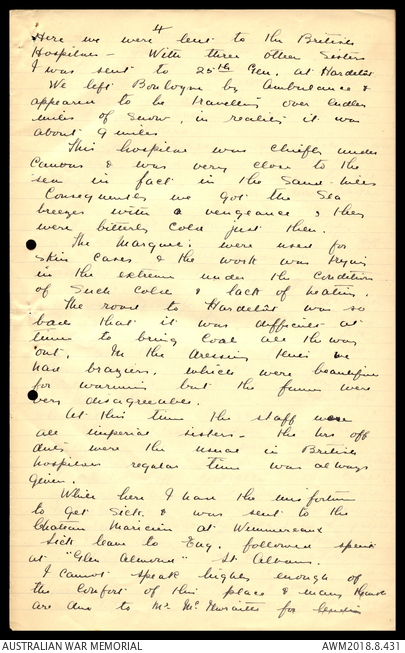 4
Here we were lent to the British
Hospitals - With three other Sisters
I was sent to 25th Gen. at Hardelot
We left Boulogne by Ambulance &
appeared to be travelling over endless
miles of Snow, in reality it was
about 9 miles
This hospital was chiefly under
Canvas & was very close to the
sea in fact in the Sand-hills
Consequently we got the Sea
breezes with a vengeance & they
were bitterly cold just then.
The Marquees were used for
Skin cases & the work was trying
in the extreme under the conditions
of such cold & lack of heating.
The road to Hardelot was so
bad that it was difficult at
times to bring Coal all the way
out. In the dressing tents we
had braziers, which were beautiful
for warming but the fumes were
very disagreeable.
At this time the staff were
all imperial sisters - the hrs off
duty were the usual in British
hospitals regular time was always
given.
While here I had the misfortune
to get Sick & was sent to the
Chateau Mauricien at Wimmereaux
Sick leave to Eng. followed spent
at "Glen Almond" St. Albans.
I cannot speak highly enough of
the comfort of this place & many thanks
are due to Mr. for lending
AUSTRALIAN WAR MEMORIAL
AWM2018.8.431